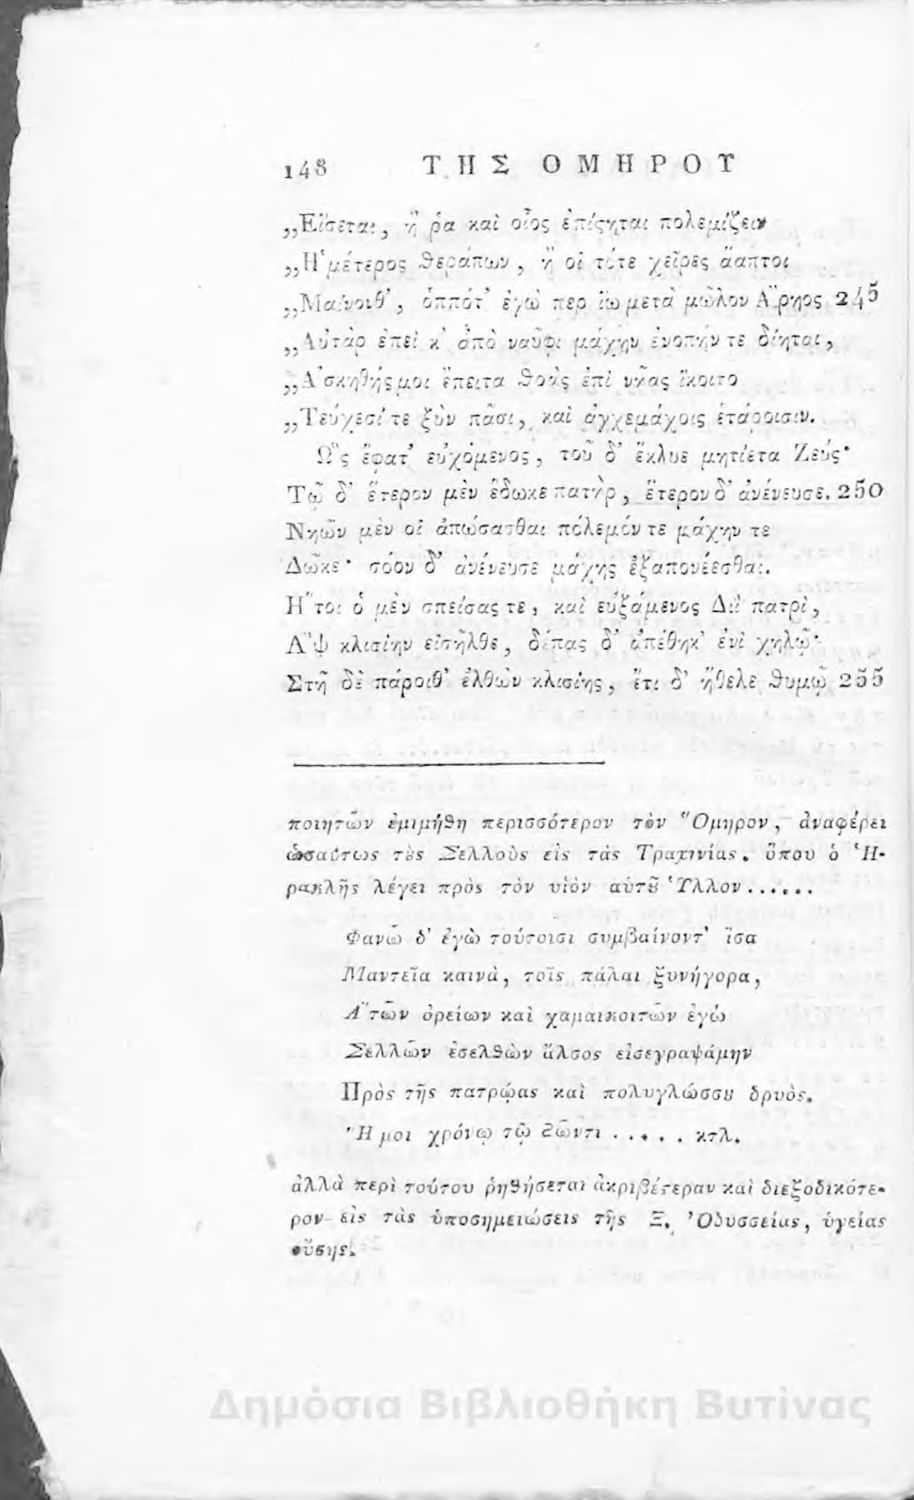 148 ΤΗΣ ΟΜΗΡΟΥ
„Εἴσεται, ἤ ῥα καὶ οἶος ἐπίςηται πολεμίζειν
„Ἡμέτερος θεράπων, ἤ οἱ τότε χεῖρες ἄαπτοι
„Μαίνοιθ', ὁππότ' ἐγώ περ ἴω μετὰ μῶλον Ἄρηος 245
„Αὐτὰρ ἐπεί κ' ἀπὸ ναῦφι μάχην ἐνοπήν τε δίηται,
„Ἀσκηθής μοι ἔπειτα θοὰς ἐπὶ νῆας ἵκοιτο
„Τεύχεσί τε ξὺν πᾶσι, καὶ ἀγχεμάχοις ἑτάροισιν.
Ὣς ἔφατ' εὐχόμενος, τοῦ δ' ἔκλυε μητίετα Ζεύς·
Τῷ δ' ἕτερον μὲν ἔδωκε πατὴρ, ἕτερον δ' ἀνένευσε. 250
Νηῶν μὲν οἱ ἀπώσασθαι πόλεμόν τε μάχην τε
Δῶκε· σόον δ' ἀνένευσε μάχης ἐξαπονέεσθαι.
Ἤτοι ὁ μὲν σπείσας τε, καὶ εὐξάμενος Διῒ πατρὶ,
Ἂψ κλισίην εἰσῆλθε, δέπας δ' ἀπέθηκ' ἐνὶ χηλῷ·
Στῆ δὲ πάροιθ' ἐλθὼν κλισίης, ἔτι δ' ἤθελε θυμῷ 255
ποιητῶν ἐμιμήθη περισσότερον τὸν Ὅμηρον, ἀναφέρει
ὡσαύτως τȣ̀ς Σελλοὺς εἰς τὰς Τραχινίας. ὅπου ὁ Ἡ-
ρακλῆς λέγει πρὸς τὸν υἱὸν αὑτȣ͂ Ὕλλον......
Φανῶ δ' ἐγὼ τούτοισι συμβαίνοντ' ἴσα
Μαντεῖα καινὰ, τοῖς πάλαι ξυνήγορα,
Ἃ τῶν ὀρείων καὶ χαμαικοιτῶν ἐγὼ
Σελλῶν ἐσελθὼν ἄλσος εἰσεγραψάμην
Πρὸς τῆς πατρῴας καὶ πολυγλώσσȣ δρυὸς.
Ἥ μοι χρόνῳ τῷ ζῶντι ..... κτλ.
ἀλλὰ περὶ τούτου ῥηθήσεται ἀκριβέτεραν καὶ διεξοδικότε-
ρον εἰς τὰς ὑποσημειώσεις τῆς Ξ. Ὀδυσσείας, ὑγείας
οὔσης.
Δημόσια Βιβλιοθήκη Βυτίνας